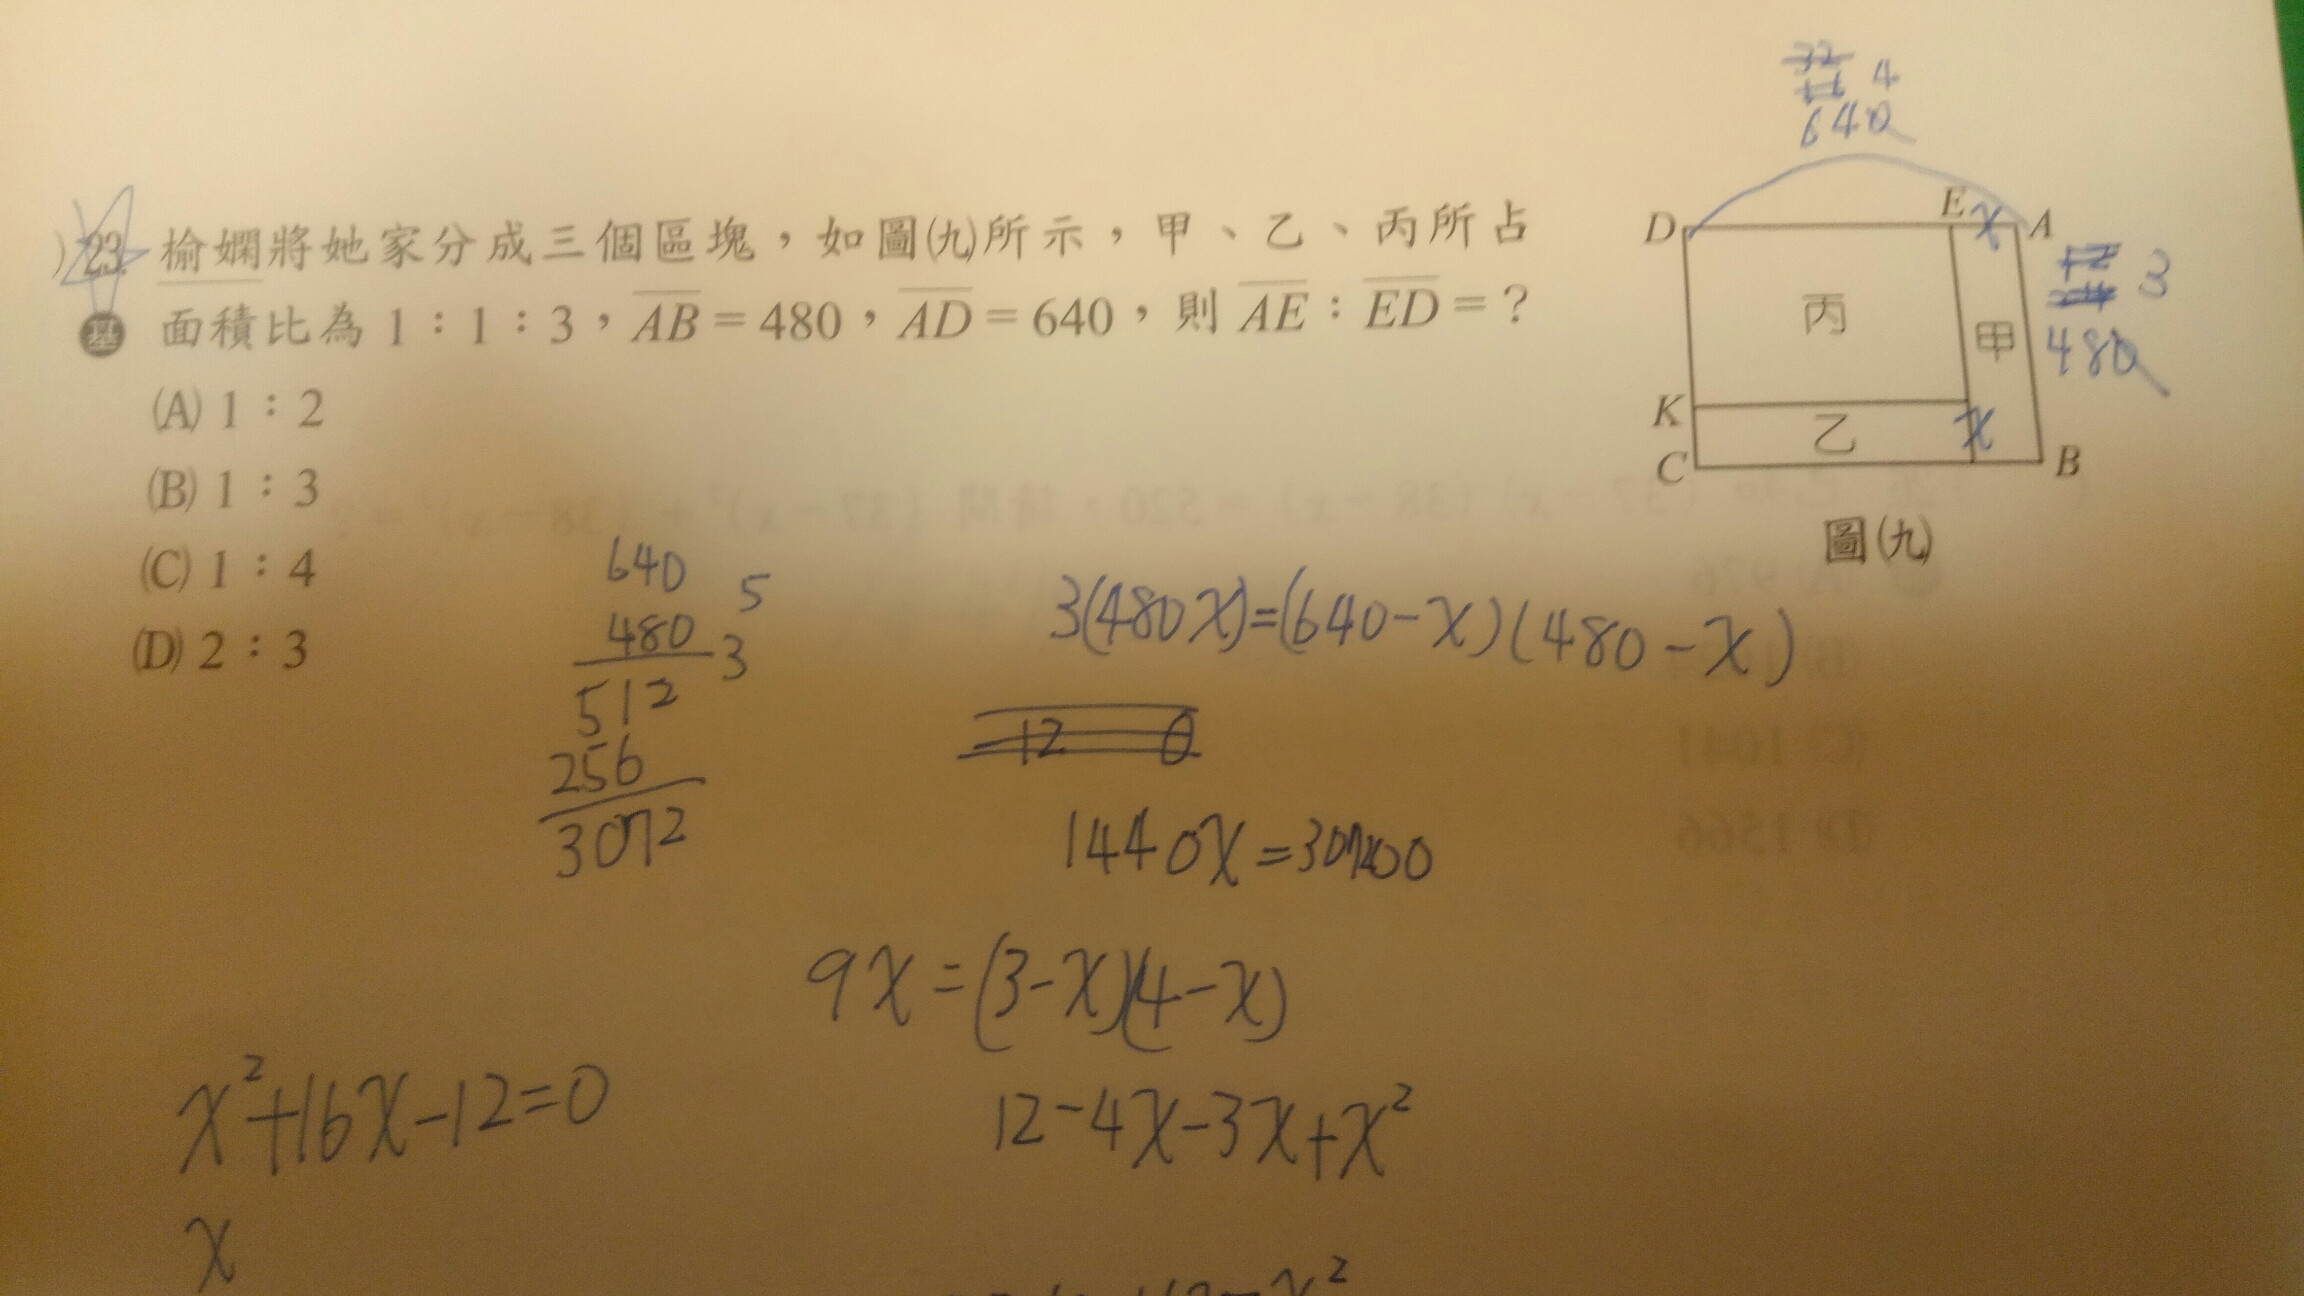 )23. 榆嫻將她家分成三個區塊，如圖(九)所示，甲、乙、丙所占
基 面積比為 1：1：3，AB＝480，AD＝640，則 AE：ED＝？
(A) 1：2
(B) 1：3
(C) 1：4
(D) 2：3
4
640
D
E
x
A
3
480
丙
甲
K
乙
x
C
B
圖(九)
640
480
512
256
3072
5
3
3(480x)=(640-x)(480-x)
12 0
1440x=307200
9x=(3-x)(4-x)
12-4x-3x+x²
x²+16x-12=0
x